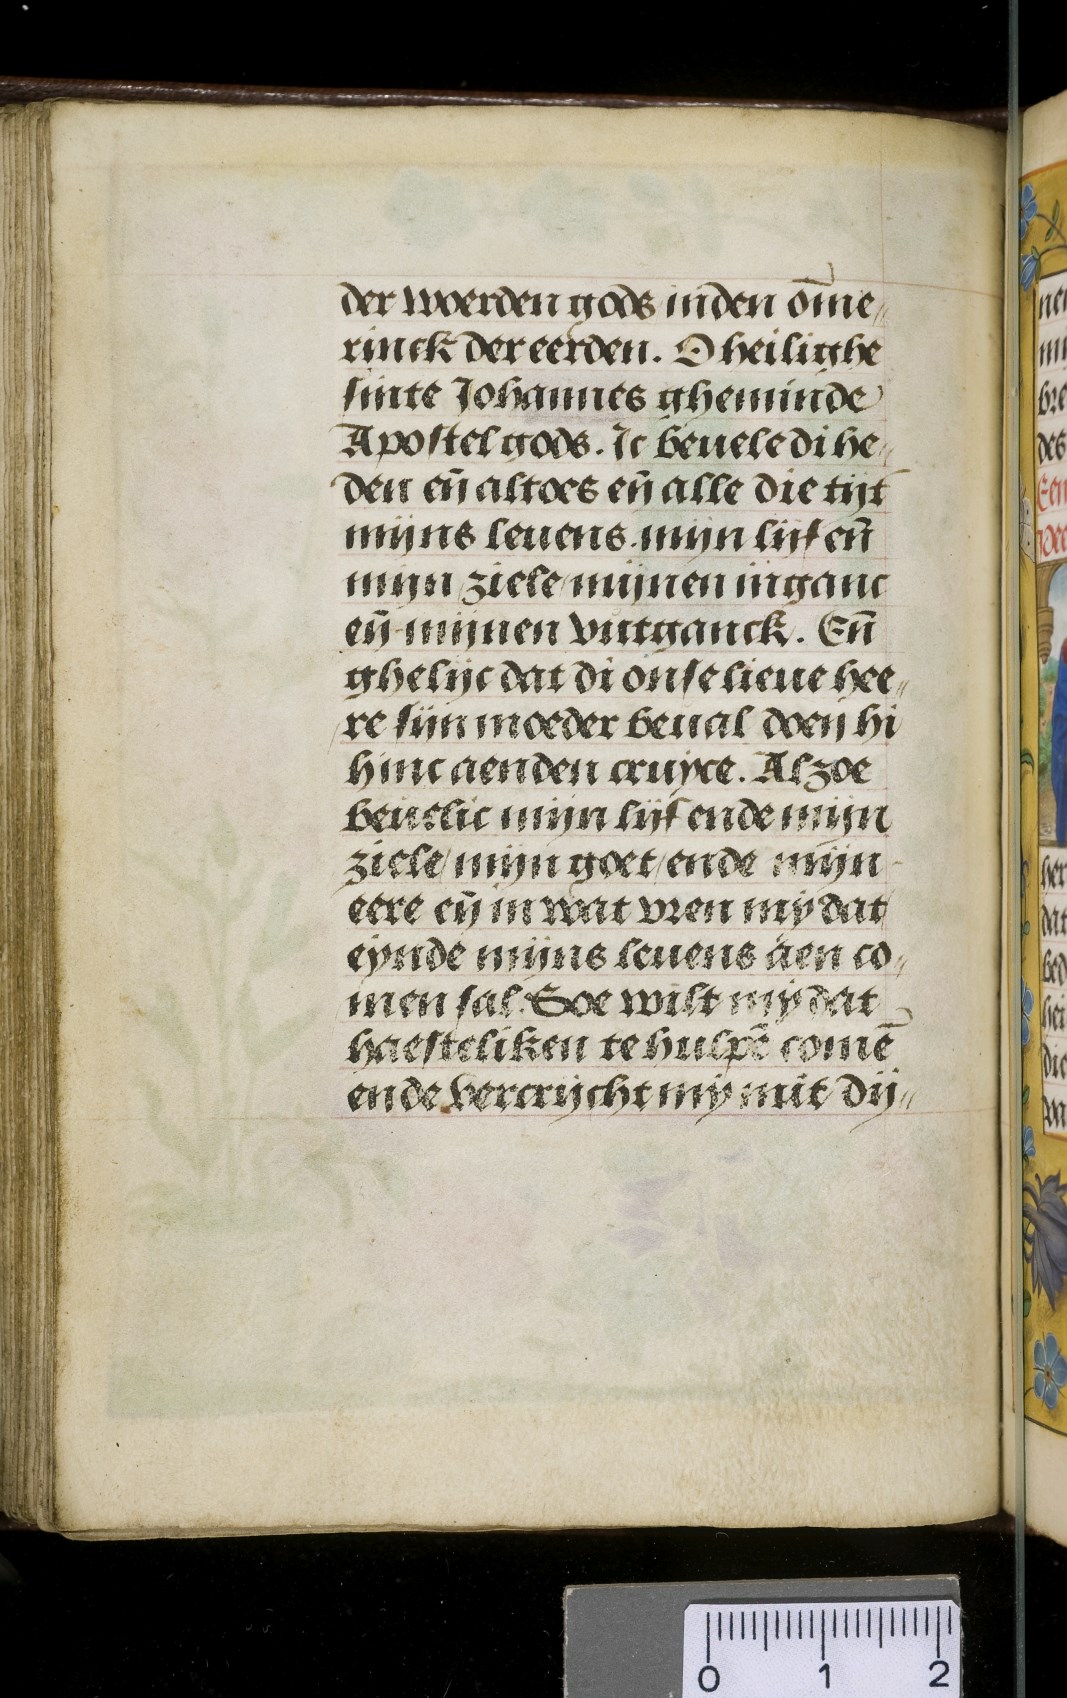 der woerden gods inden om̄e⸗
rinck der eerden. O heilighe
sinte Johannes gheminde
Apostel gods. Ic beuele di he⸗
den en̄ altoes en̄ alle die tijt
mijns leuens. mijn lijf en̄
mijn ziele / mijnen inganc
en̄ mijnen vutganck. En̄
ghelijc dat di onse lieue hee⸗
re sijn moeder beual doen hi
hinc aenden cruyce. Alzoe
beuelic mijn lijf ende mijn
ziele / mijn goet / ende mijn
eere en̄ in wat vren mij dat
eynde mijns leuens aen co⸗
men sal. Soe wilt mij dat
haesteliken te hulpē comē
ende vercrijcht mij mit dij⸗
0 1 2